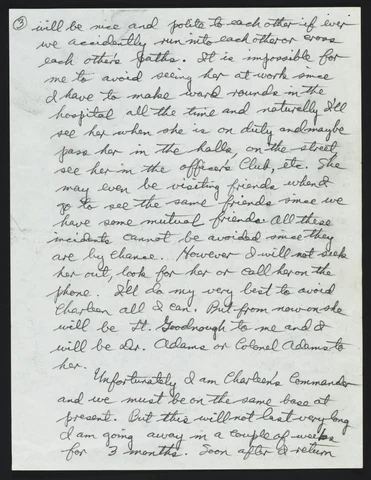 ③ will be nice and polite to each other if ever
we accidently run into each other or cross
each others paths. It is impossible for
me to avoid seeing her at work since
I have to make ward rounds in the
hospital all the time and naturally I'll
see her when she is on duty and maybe
pass her in the halls, on the street
see her in the officer's Club, etc. She
may even be visiting friends when I
go to see the same friends since we
have some mutual friends. All these
incidents cannot be avoided since they
are by chance. However I will not seek
her out, look for her or call her on the
phone. I'll do my very best to avoid
Charleen all I can. But from now on she
will be Lt. Goodnough to me and I
will be Dr. Adams or Colonel Adams to
her.
Unfortunately I am Charleen's Commander
and we must be on the same base at
present. But this will not last very long
I am going away in a couple of weeks
for 3 months. Soon after I return